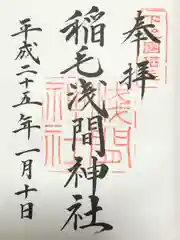 奉拝
稲毛浅間神社
平成二十五年一月十日